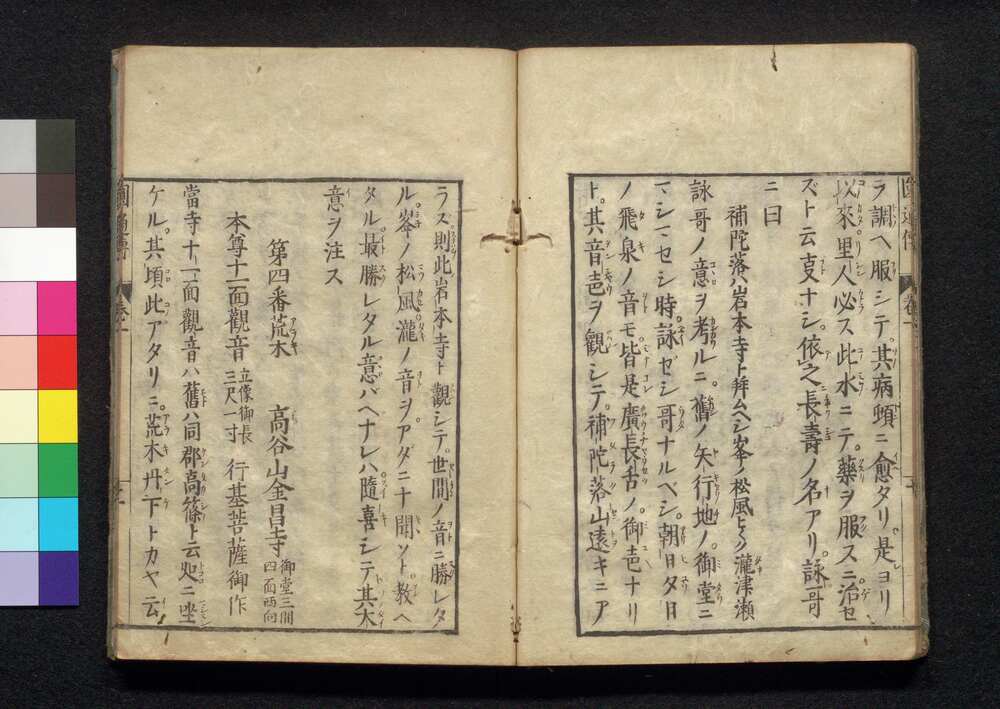 ラ調ヘ服シテ其病頓ニ愈タリ是ヨリ
以来里人必ス此水ニテ藥ヲ服スニ治セ
ズト云支ナシ依之長壽ノ名アリ詠哥
ニ曰
補陀落ハ岩本寺ト拜ムヘシ峯ノ松風ヒヾク瀧津瀬
詠哥ノ意ヲ考ルニ舊ノ矢行地ノ御堂ニ
マシマセシ時詠ゼシ哥ナルベシ朝日夕日
ノ飛泉ノ音モ皆是廣長舌ノ御色ナリ
ト其音色ヲ觀シテ補陀落山遠キニア
ラズ則此岩本寺ト觀シテ世間ノ音ニ勝レタ
ル峯ノ松風瀧ノ音ヲアダニナ聞ソト教ヘ
タル最勝レタル意バヘナレハ隨喜シテ其大
意ヲ注ス
第四番荒木 高谷山金昌寺 御堂三間四面西向
本尊十一面觀音 立像御長三尺一寸 行基菩薩御作
當寺十一面觀音ハ舊ハ同郡高篠ト云処ニ坐
ケル其頃此アタリニ荒木丹下トカヤ云